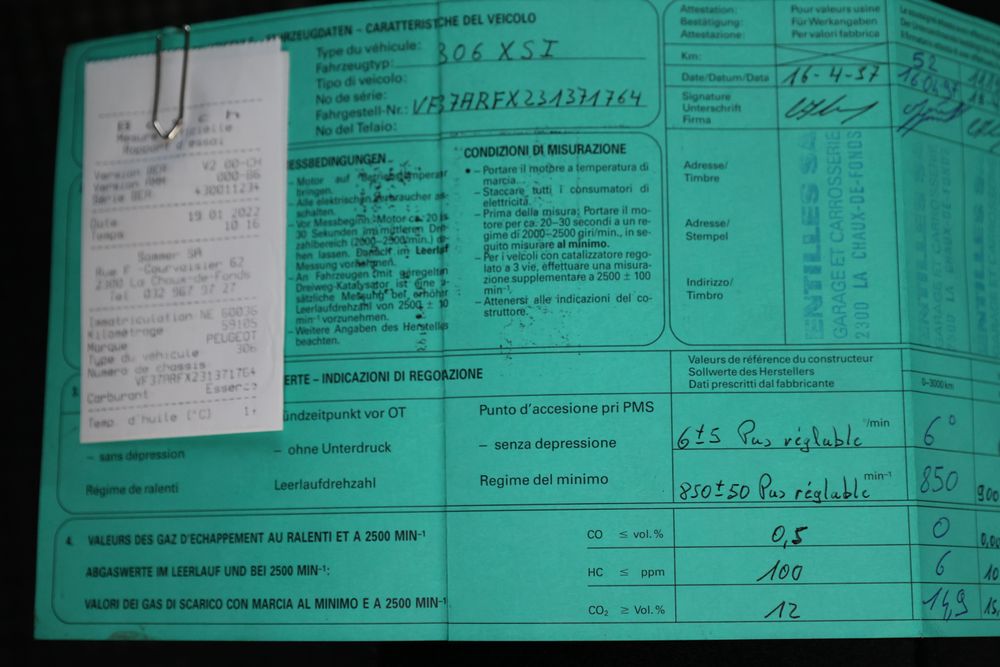 FAHRZEUGDATEN – CARATTERISTICHE DEL VEICOLO
Type du véhicule:
Fahrzeugtyp:
306 XSI
Tipo di veicolo:
No de série:
Fahrgestell-Nr.:
VF37ARFX231371764
No del Telaio:
Attestation:
Bestätigung:
Attestazione:
Pour valeurs usine
Für Werkangaben
Per valori fabbrica
Km:
52
Date/Datum/Data
16-4-97
16.04.97
Signature
Unterschrift
Firma
Adresse/
Timbre
Adresse/
Stempel
Indirizzo/
Timbro
ENTILLES SA
GARAGE ET CARROSSERIE
2300 LA CHAUX-DE-FONDS
Rapport d'essai
Version BER V2 00-CH
Version AMM 000-B6
Série BER 430011234
Date 19 01 2022
Temps 10 16
Sommer SA
Rue F-Courvoisier 62
2300 La Chaux-de-Fonds
Tel. 032 967 37 27
Immatriculation NE 60036
Kilométrage 59105
Marque PEUGEOT
Type du véhicule 306
Numéro de chassis
VF37ARFX231371764
Carburant Essence
Temp. d'huile [°C]
MESSBEDINGUNGEN
– Motor auf Betriebstemperatur
bringen.
– Alle elektrischen Verbraucher
schalten.
– Vor Messbeginn: Motor ca. 20
30 Sekunden im mittleren
zahlbereich (2000–2500/min.)
hen lassen. Danach im Leerlauf
Messung vornehmen.
– An Fahrzeugen mit geregeltem
Dreiweg-Katalysator ist eine
sätzliche Messung bei erhöhter
Leerlaufdrehzahl von 2500 ± 10
min⁻¹ vorzunehmen.
– Weitere Angaben des Herstellers
beachten.
CONDIZIONI DI MISURAZIONE
– Portare il motore a temperatura di
marcia.
– Staccare tutti i consumatori di
elettricità.
– Prima della misura: Portare il mo-
tore per ca. 20–30 secondi a un re-
gime di 2000–2500 giri/min., in se-
guito misurare al minimo.
– Per i veicoli con catalizzatore rego-
lato a 3 vie, effettuare una misura-
zione supplementare a 2500 ± 100
min⁻¹.
– Attenersi alle indicazioni del co-
struttore.
3.
WERTE – INDICAZIONI DI REGOAZIONE
Valeurs de référence du constructeur
Sollwerte des Herstellers
Dati prescritti dal fabbricante
0–3000 km
Zündzeitpunkt vor OT
Punto d'accesione pri PMS
– sans dépression
– ohne Unterdruck
– senza depressione
6±5 Pas réglable °/min
6°
Régime de ralenti
Leerlaufdrehzahl
Regime del minimo
850±50 Pas réglable min⁻¹
850
900
4. VALEURS DES GAZ D'ECHAPPEMENT AU RALENTI ET A 2500 MIN⁻¹
CO ≤ vol.%
0,5
0
ABGASWERTE IM LEERLAUF UND BEI 2500 MIN⁻¹:
HC ≤ ppm
100
6
10
VALORI DEI GAS DI SCARICO CON MARCIA AL MINIMO E A 2500 MIN⁻¹
CO₂ ≥ Vol.%
12
14,9
15,